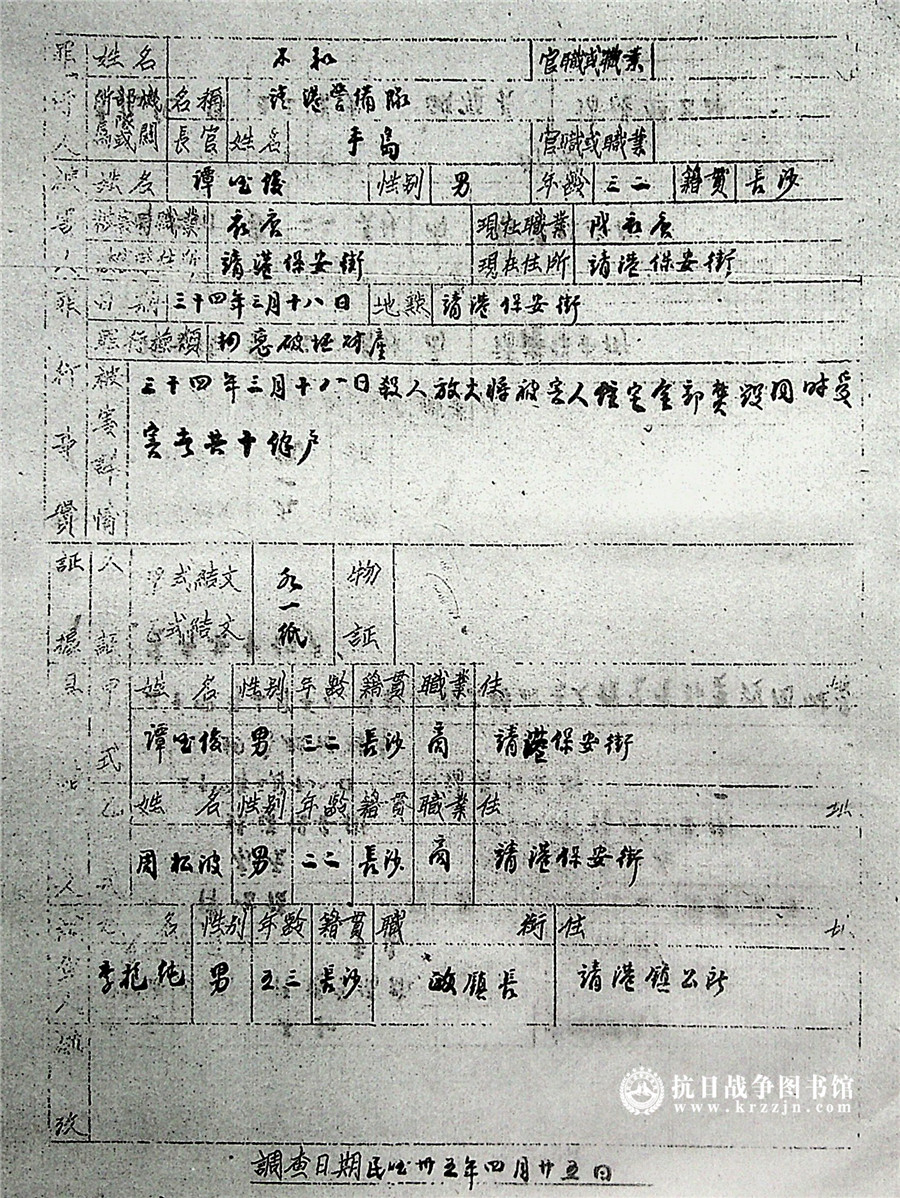 罪行人 姓名 不知 官職或職業
所屬部隊或機關 名稱 靖港警備隊
長官姓名 手島 官職或職業
被害人 姓名 譚 俊 性别 男 年齡 三二 籍貫 長沙
被害時職業 現在職業
靖港保安街 現在住所 靖港保安街
罪行事實 日期 三十四年三月十八日 地點 靖港保安街
罪行種類 破壞財產
被害詳情 三十四年三月十八日殺人放火將被害人住宅全部焚毀同時受
害者共十余户
証據 人証 甲式結文 一紙 物証
乙式結文
甲式 姓名 性别 年齡 籍貫 職業 住
譚 俊 男 三二 長沙 商 靖港保安街
乙式 姓名 性别 年齡 籍貫 職業 住 址
周松波 男 二二 長沙 商 靖港保安街
調查人 姓名 性别 年齡 籍貫 職銜 住 址
李 純 男 五三 長沙 鎮長 靖港鎮公所
抗日战争图书馆
www.krzzjn.com
調查日期民國卅五年四月廿五日